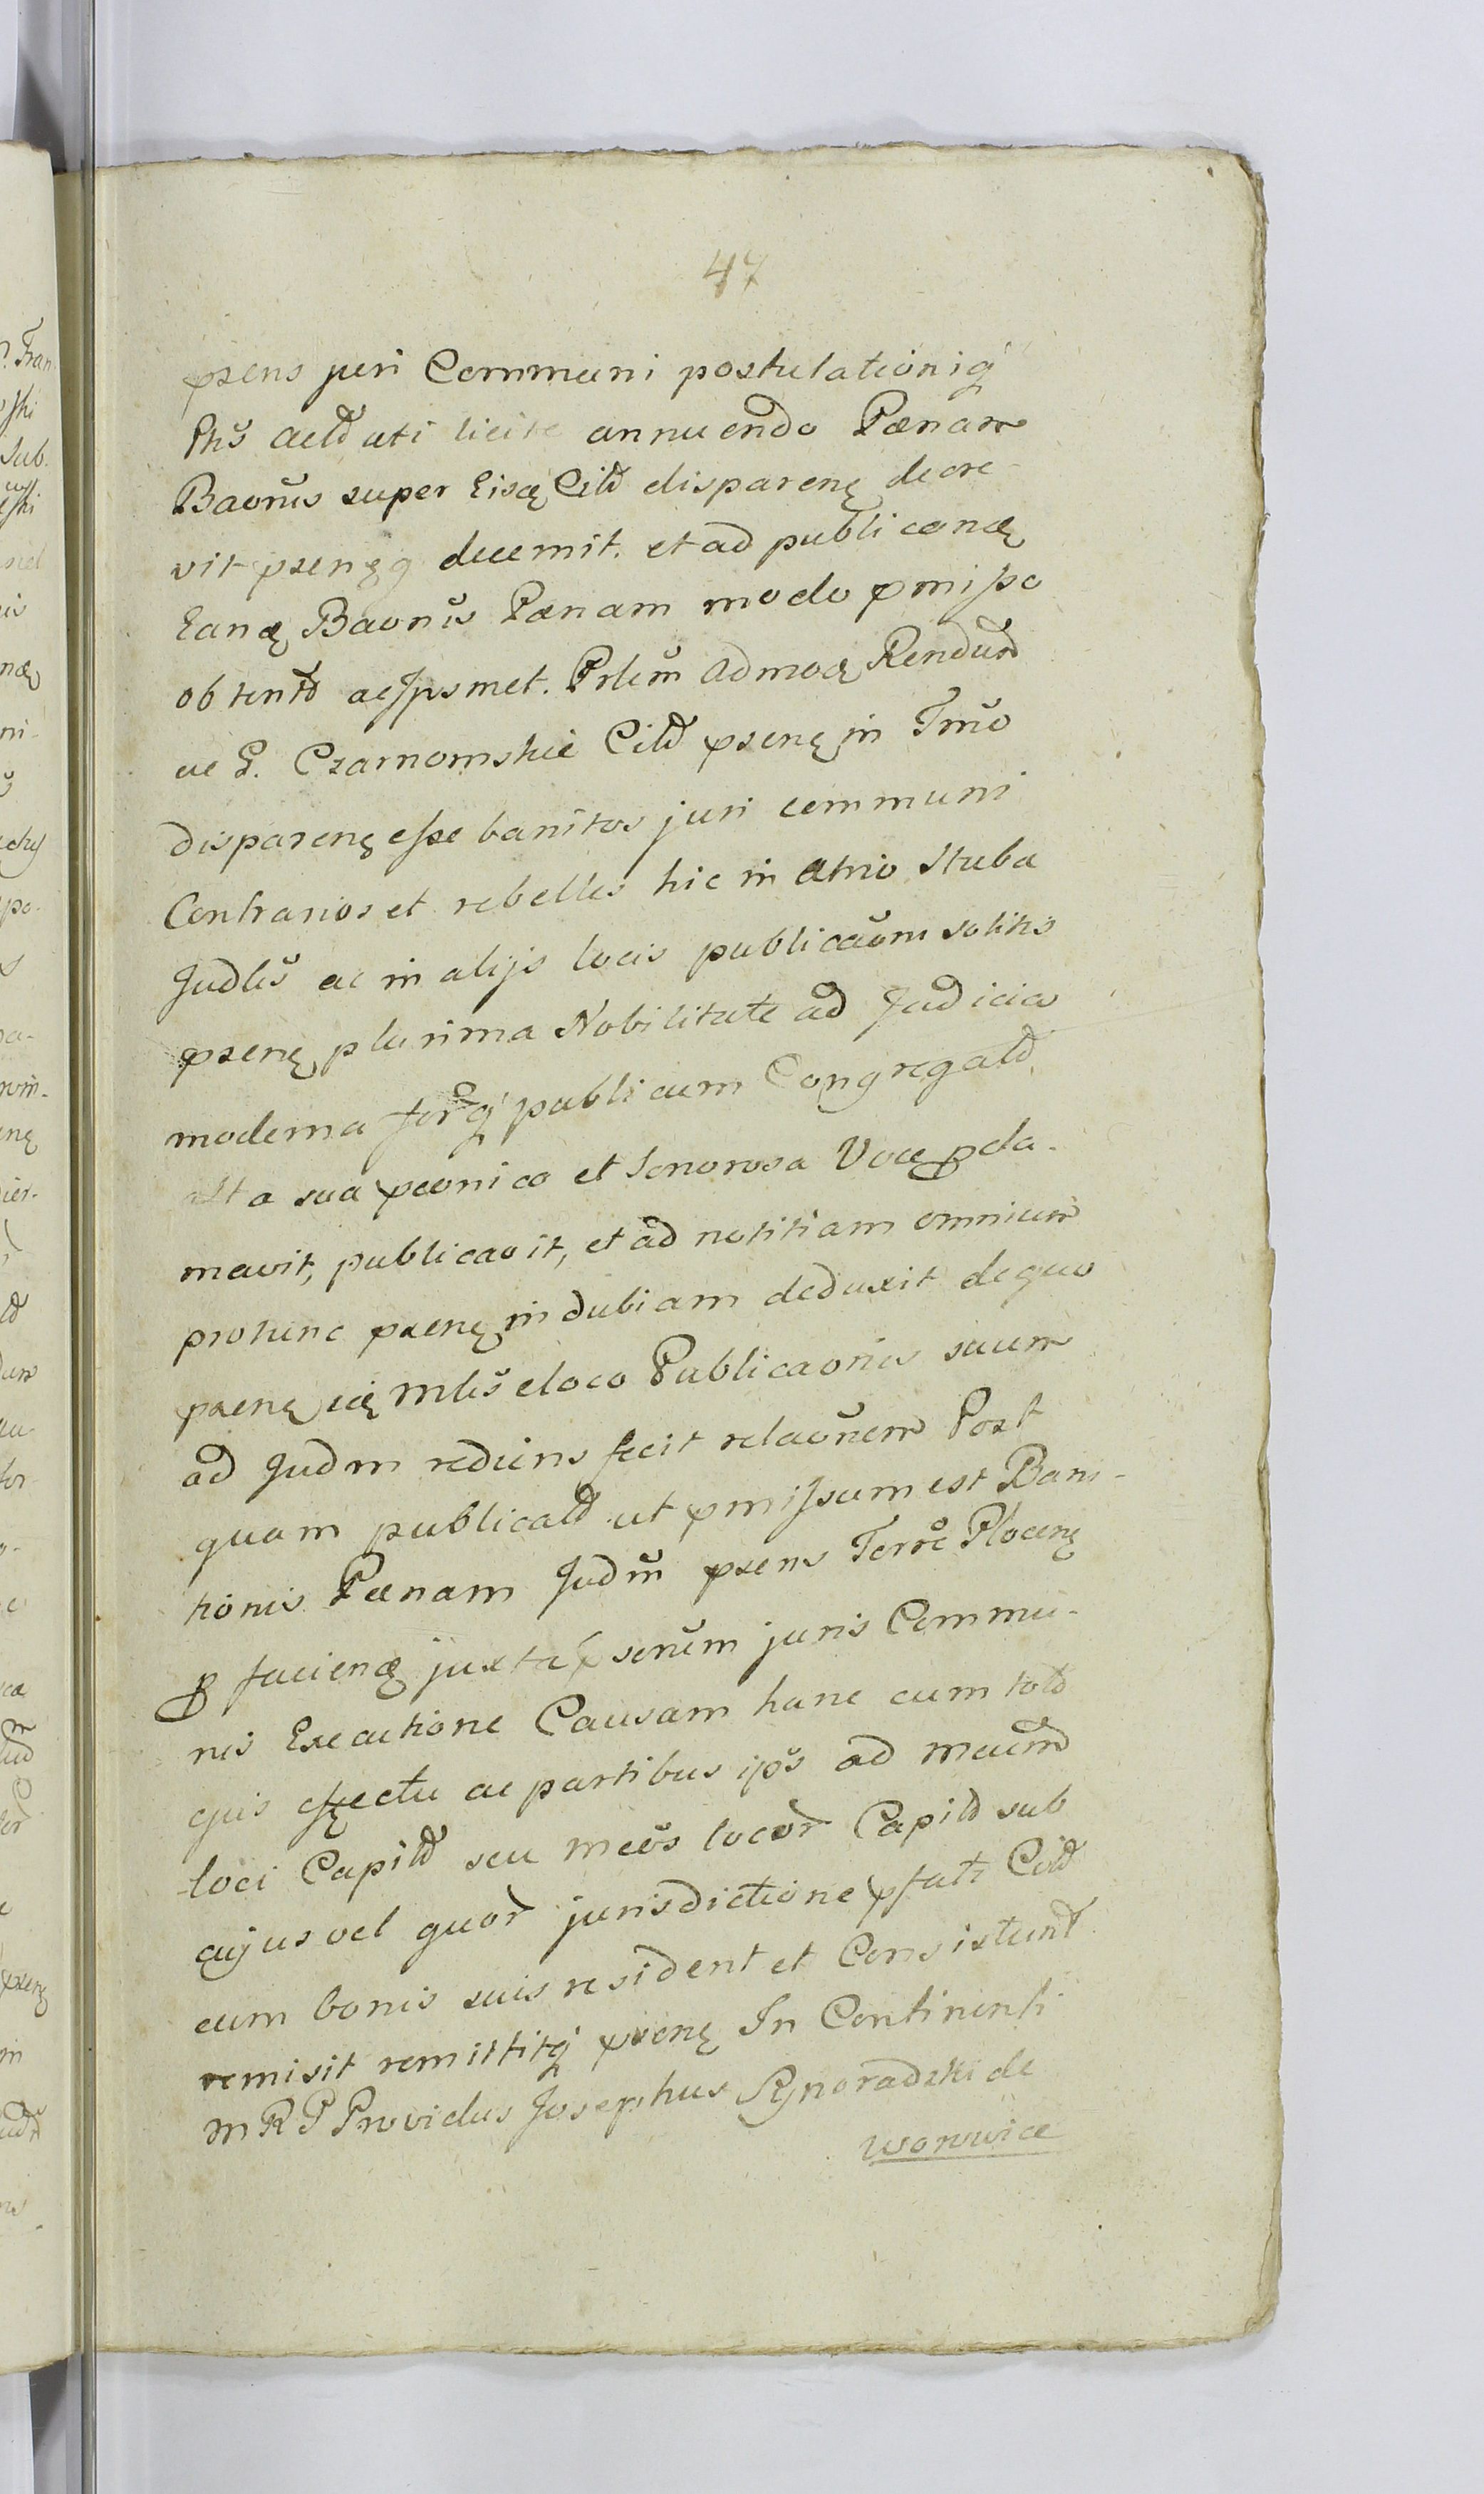 47
psens juri Communi postulationiq́
Pŕis actt̃ uti licite annuendo Pænam
Baoñis super Eisdę Citt̃ disparenę decre-
vit psenęq decernit. et ad publicandę
Eandę Baoñis Pænam modo pmiſso
obtentt̃ ac Ipsmet. Prlem̃ admodę Rendum̃
ac G. Czarnomskie Citt̃ psenę in Trño
disparenę eſse banitos juri communi
Contrarios et rebelles hic in atrio Stuba
Judlĩs ac in alijs locis publicaõm solitis
psenę plurima Nobilitate ad Judicia
moderna forq́ publicum Congregatt̃
alta sua pconica et Sonorosa Voce ꝓcla-
mavit, publicavit, et ad notitiam omnium
prohinc psenę indubiam deduxit de quo
psenę idę Mlĩs eloco Publicaonis suum
ad Judm rediens fecit relaoñem Post
quam publicatt̃ ut pmiſsum est Bani-
tionis Pænam Judm̃ psens Terrẽ Plocenę
ꝓ faciendę juxta pserũm juris Commu-
nis Executione Causam hanc cum tott̃
ejus effectu ac partibus ipš ad
loci Capitt̃ seu locor̃ Capitt̃ sub
cujus vel quor̃ jurisdictione pfati Citt̃
cum bonis suis resident et Consistunt
remisit remittitq́ psenę In Continenti
MRP Providus Josephus Rynoradzki de